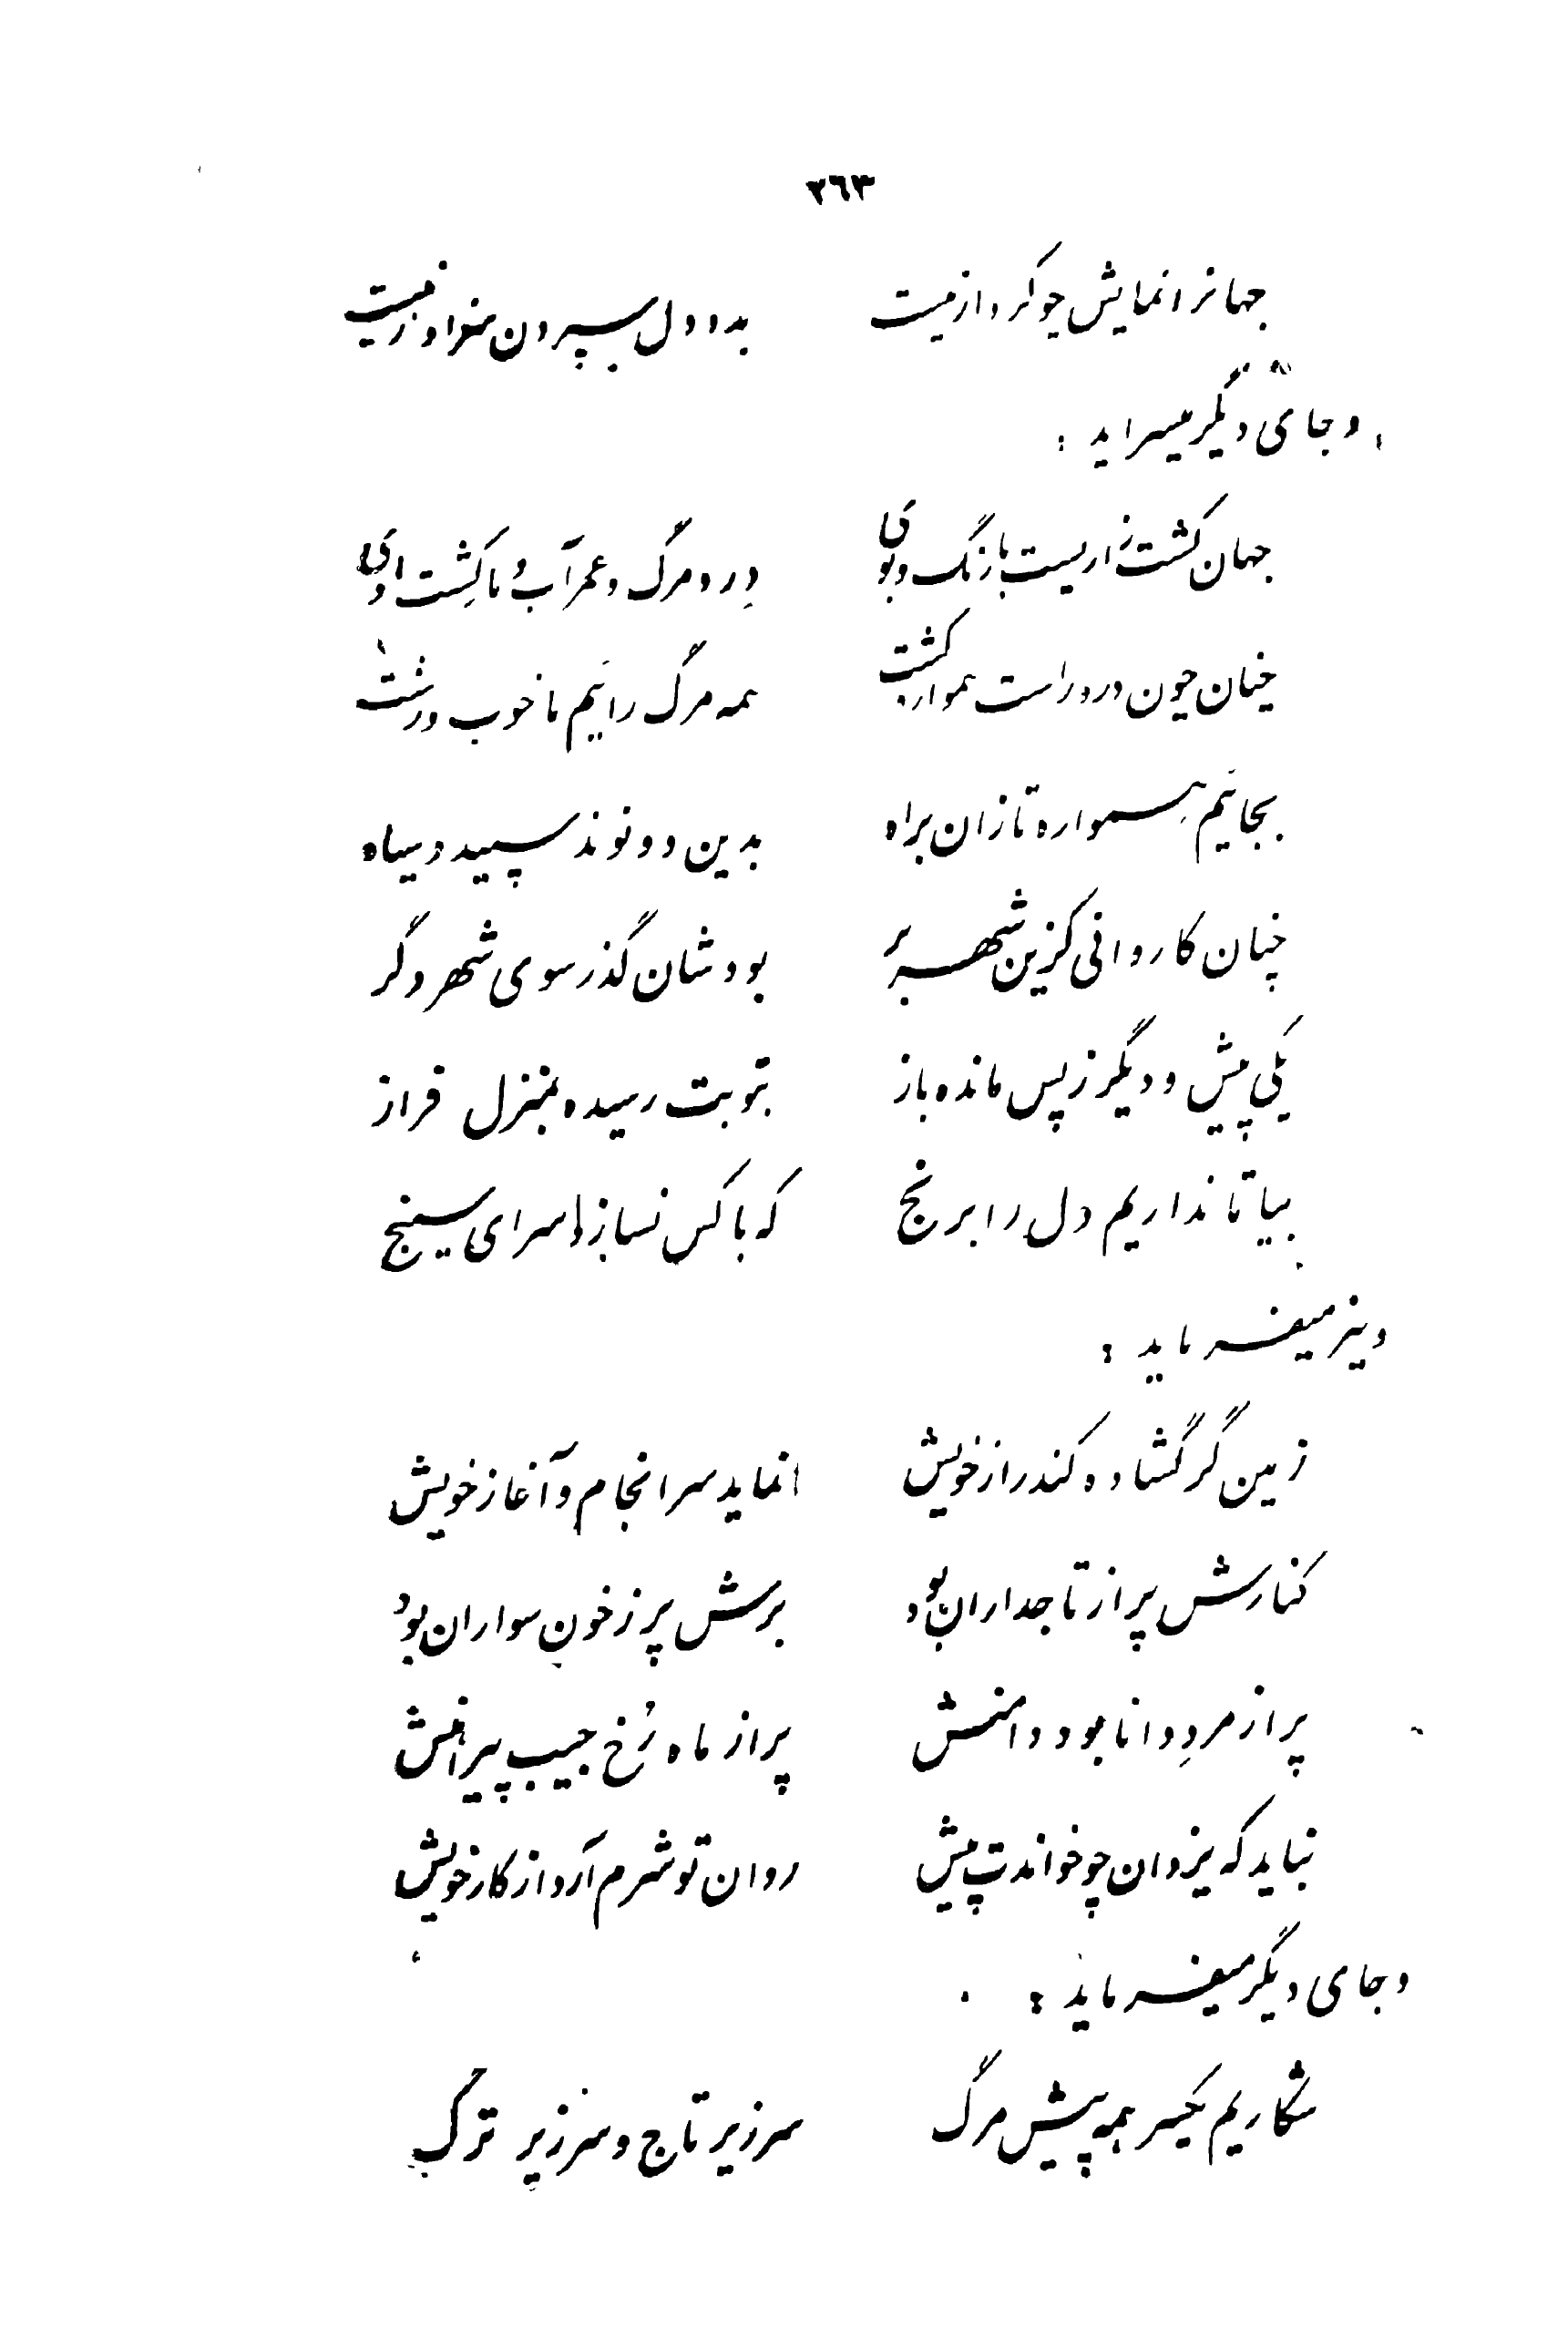 ٢٦٣
جهانرا نمایش چو کردار نیست    بدو دل سپردن سزاوار نیست
وجای دیگر میسراید :
جهان کشت زاریست با رنگ و بوی    درو مرگ و عمر آب و ما کِشت اوی
چنان چون درو راست هموار کشت    همه مرگ رائیم ما خوب و زشت
بجائیم همواره تازان براه    بدین دو نوند سپید و سیاه
چنان کاروانی کزین شهر بر    بود شان گذر سوی شهر دگر
یکی پیش و دیگر ز پس مانده باز    بنوبت رسیده بمنزل فراز
بیا تا نداریم دل را برنج    که با کس نسازد سرای سپنج
ونیز میفرماید :
زمین گر گشاده کند راز خویش    نماید سرانجام و آغاز خویش
کنارش پر از تاجداران بود    برش پر ز خون سواران بود
پر از مردِ دانا بود دامنش    پر از ماه رُخ جیب پیراهنش
نباید که یزدان چو خواندت پیش    روان تو شرم آرد از کار خویش
وجای دیگر میفرماید :
شکاریم یکسر همه پیش مرگ    سر زیر تاج و سر زیر ترگ